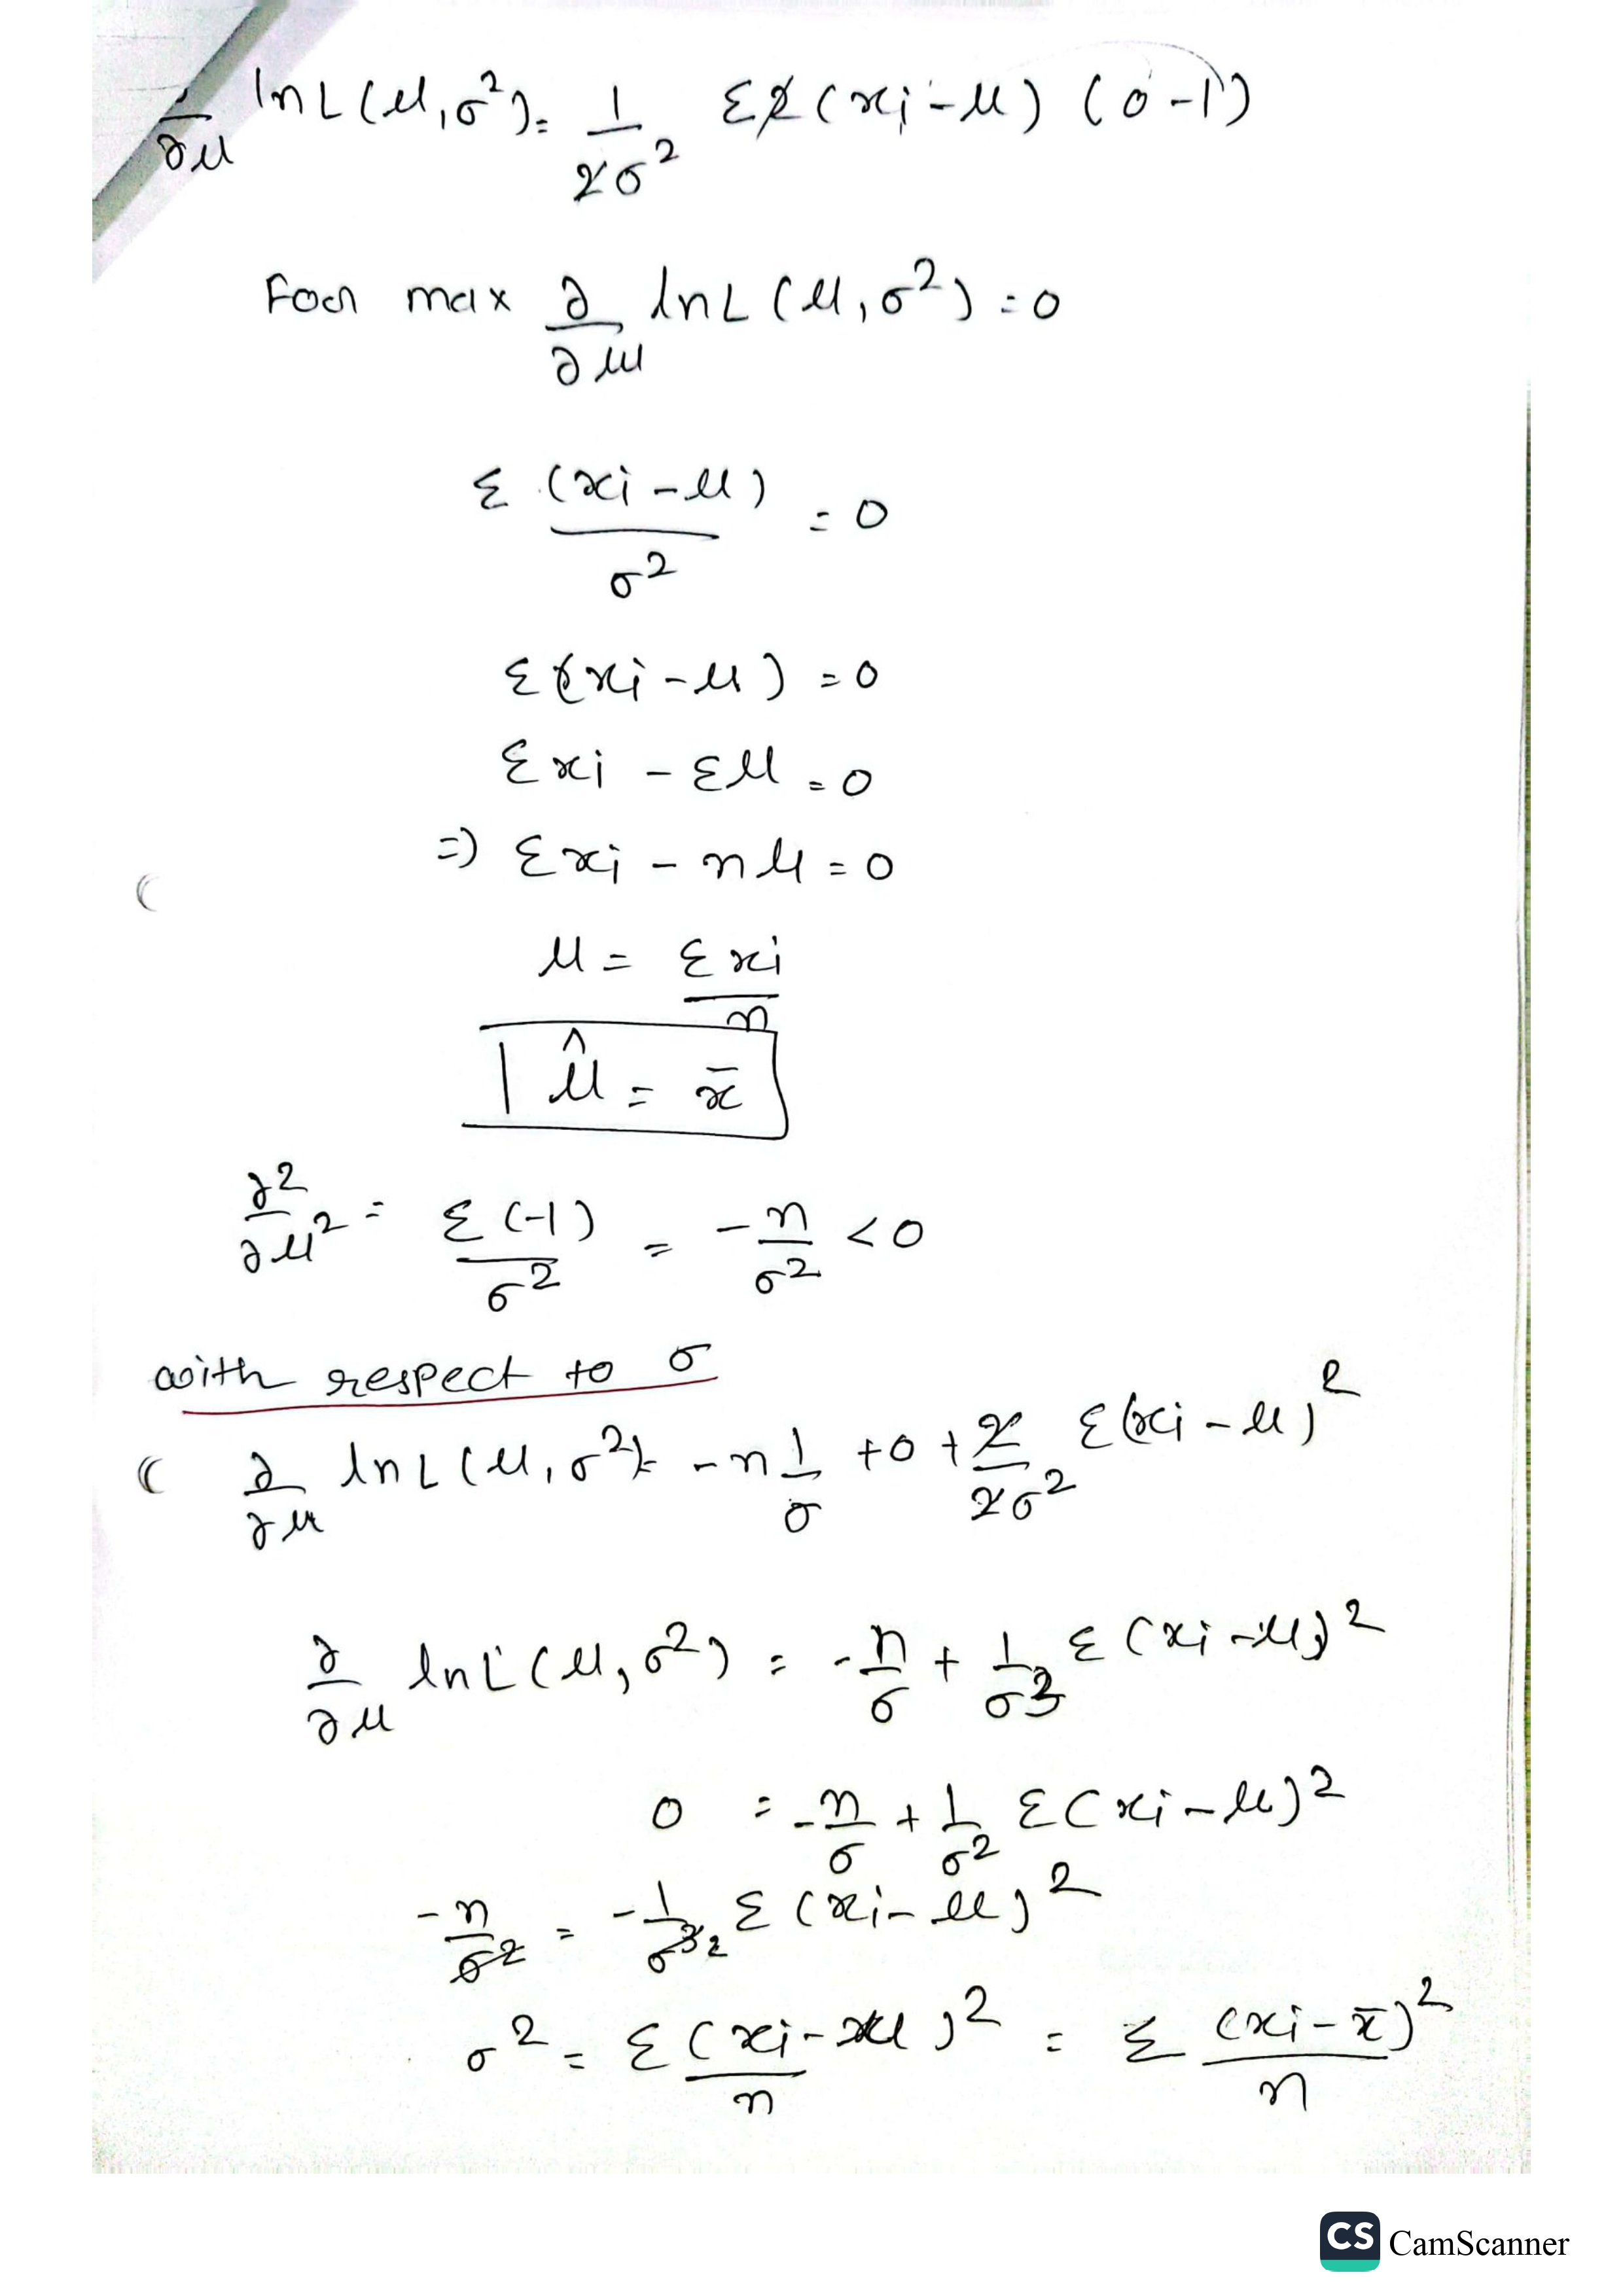 ∂/∂μ lnL(μ,σ²) = 1/2σ² Σ2(xi-μ) (0-1)
Foor max ∂/∂μ lnL(μ,σ²) = 0
Σ (xi-μ)/σ² = 0
Σ(xi-μ) = 0
Σxi - Σμ = 0
=) Σxi - nμ = 0
μ = Σxi/n
μ̂ = x̄
∂²/∂μ² = Σ(-1)/σ² = -n/σ² < 0
with respect to σ
∂/∂μ lnL(μ,σ²) = -n 1/σ + 0 + 2/2σ² Σ(xi-μ)²
∂/∂μ lnL(μ,σ²) = -n/σ + 1/σ3 Σ(xi-μ)²
0 = -n/σ + 1/σ² Σ(xi-μ)²
-n/σ2 = -1/σ32 Σ(xi-μ)²
σ² = Σ(xi-μ)²/n = Σ(xi-x̄)²/n
CS CamScanner